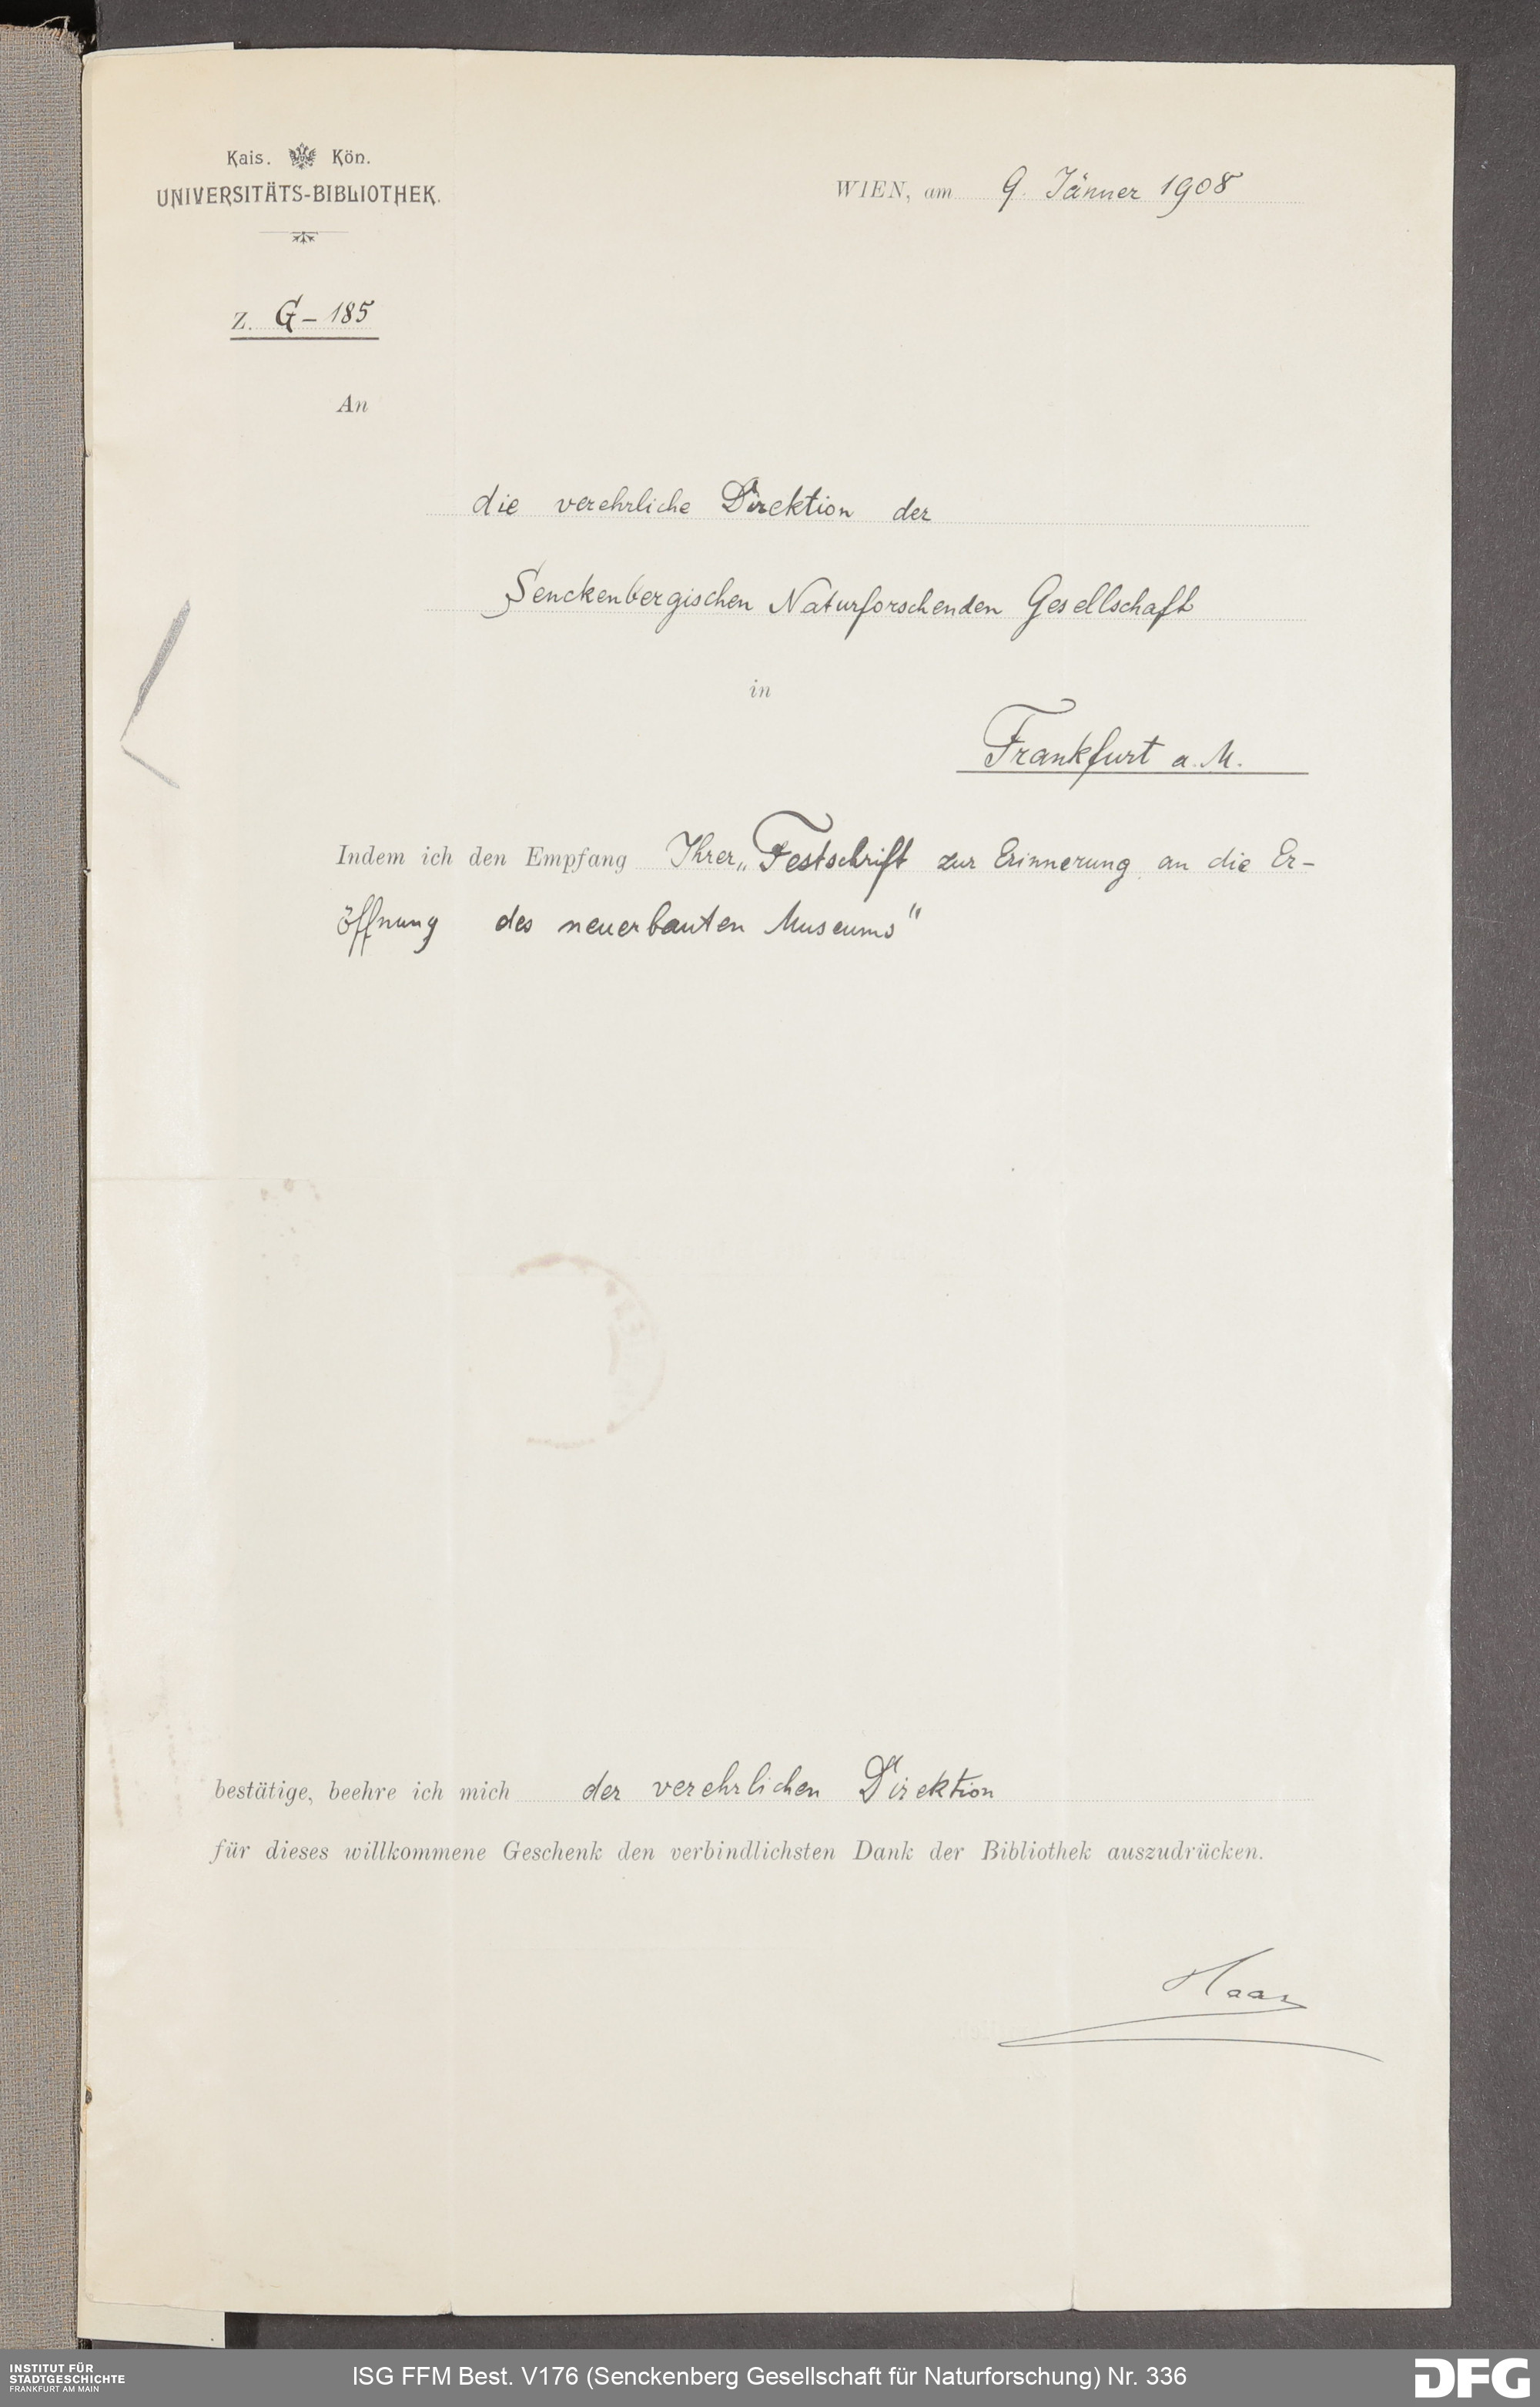 Kais. Kön.
UNIVERSITÄTS-BIBLIOTHEK.
WIEN, am 9. Jänner 1908
Z. G - 185
An
die verehrliche Direktion der
Senckenbergischen Naturforschenden Gesellschaft
in
Frankfurt a. M.
Indem ich den Empfang Ihrer „Festschrift zur Erinnerung an die Er-
öffnung des neuerbauten Museums"
bestätige, beehre ich mich der verehrlichen Direktion
für dieses willkommene Geschenk den verbindlichsten Dank der Bibliothek auszudrücken.
Haas
INSTITUT FÜR
STADTGESCHICHTE
FRANKFURT AM MAIN
ISG FFM Best. V176 (Senckenberg Gesellschaft für Naturforschung) Nr. 336
DFG